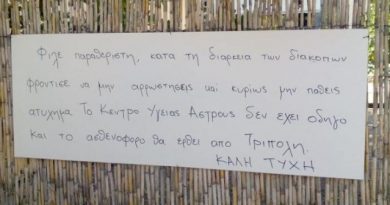 Φιλε παραθεριστη, κατα τη διαρκεια των διακοπων
φροντισε να μην αρρωστησεις και κυριως μην παθεις
ατυχημα Το Κεντρο Υγειας Αστρους δεν εχει οδηγο
και το ασθενοφορο θα ερθει απο Τριπολη.
ΚΑΛΗ ΤΥΧΗ